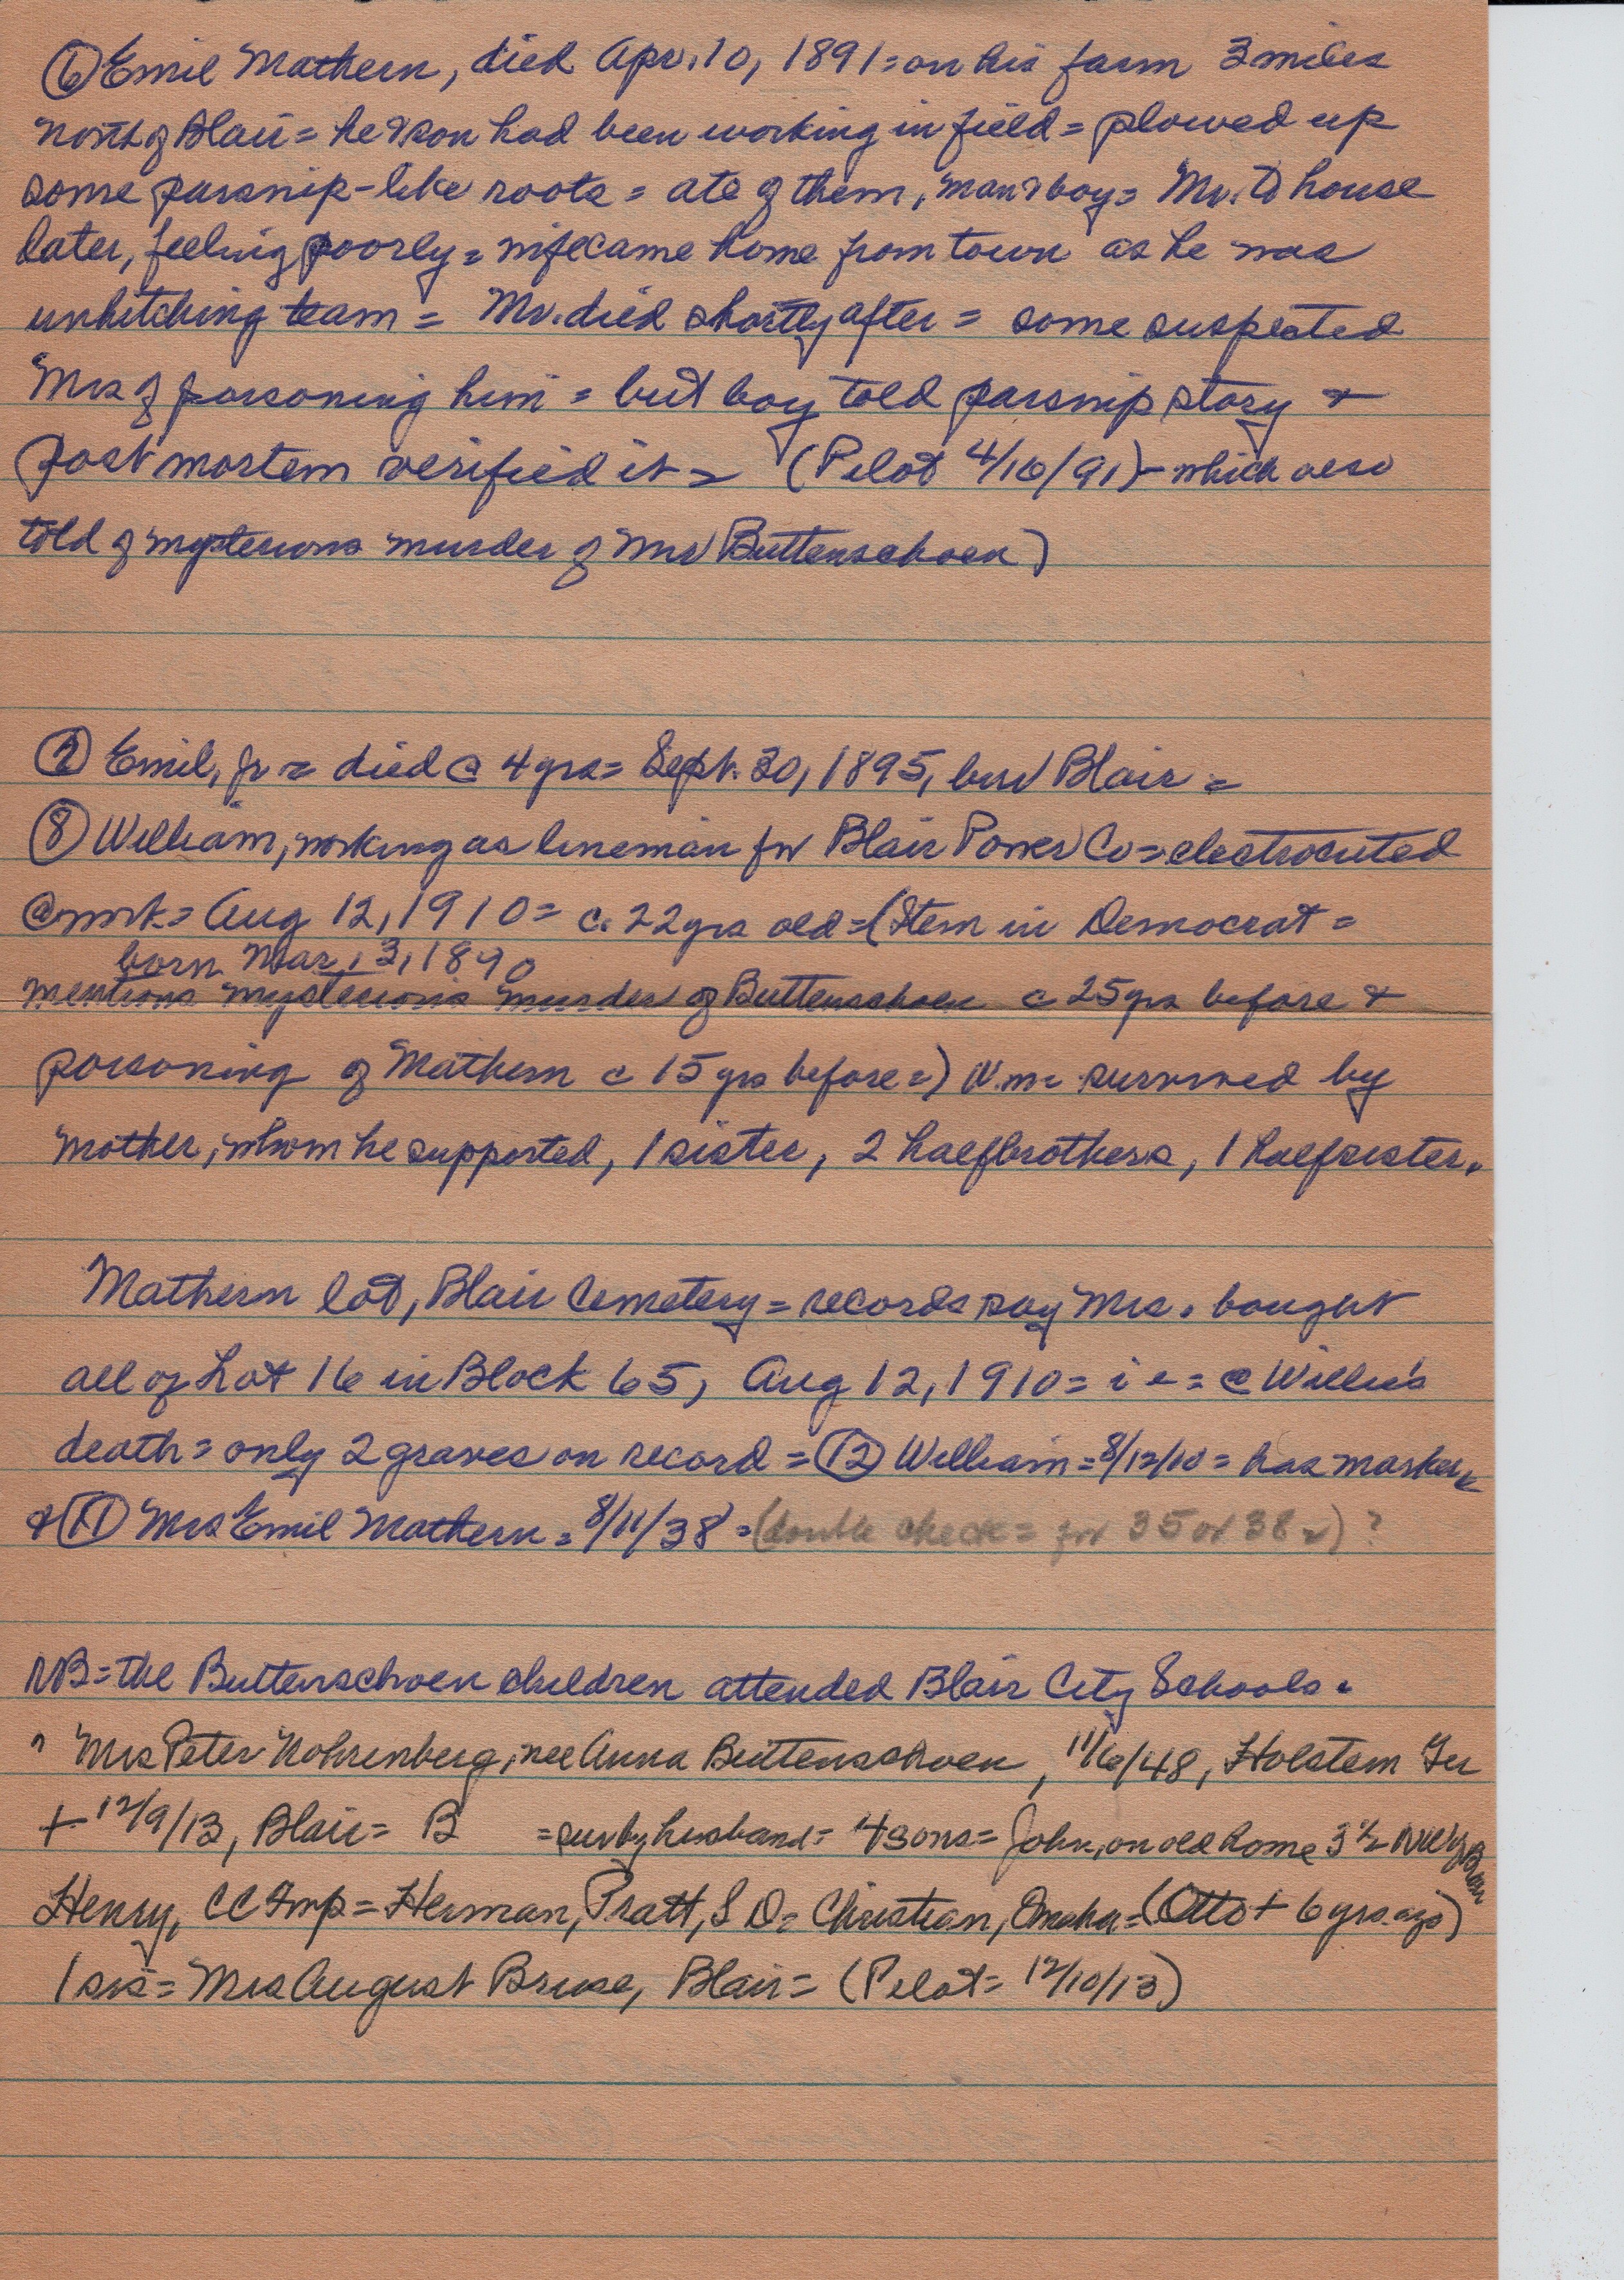 ⑥ Emil Mathern, died Apr. 10, 1891 = on his farm 3 miles
north of Blair = he & son had been working in field = plowed up
some parsnip-like roots = ate of them, man & boy = Mr. to house
later, feeling poorly = wife came home from town as he was
unhitching team = Mr. died shortly after = some suspected
Mrs of poisoning him = but boy told parsnip story &
post mortem verified it = (Pilot 4/16/91) - which also
told of mysterious murder of Mr Buttenschoen)
⑦ Emil, Jr = died @ 4 yrs = Sept. 20, 1895, bur Blair =
⑧ William, working as lineman for Blair Power Co = electrocuted
@ work = Aug 12, 1910 = c. 22 yrs old = (Item in Democrat =
born Mar, 3, 1890
mentions mysterious murder of Buttenschoen c 25 yrs before &
poisoning of Mathern c 15 yrs before =) Wm = survived by
mother, whom he supported, 1 sister, 2 halfbrothers, 1 halfsister.
Mathern lot, Blair Cemetery = records say Mrs. bought
all of Lot 16 in Block 65, Aug 12, 1910 = i e = @ Willie's
death = only 2 graves on record = ⑫ William = 8/12/10 = has marker
& ⑪ Mrs Emil Mathern = 8/11/38 = (double check = for 35 or 38 =) ?
NB = the Buttenschoen children attended Blair City Schools.
? Mrs Peter Nohrenberg, nee Anna Buttenschoen, 11/6/48, Holstein Ger
+ 12/9/13, Blair = B = sur by husband = 4 sons = John, on old home 3 1/2 NW of Blair
Henry, CC Imp = Herman, Pratt, S D = Christian, Omaha = (Otto + 6 yrs. ago)
1 sis = Mrs August Bruse, Blair = (Pilot = 12/10/13)